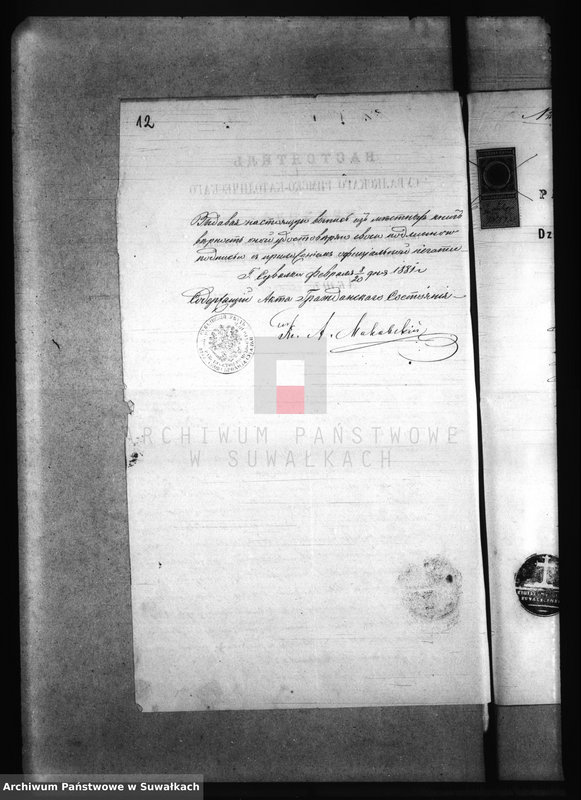 12
НАСТОЯТЕЛЬ
Выдавая настоящую выпись изъ местныхъ книгъ
верность оной удостоверяю своею подлинною
подписью съ приложеніемъ официальной печати
Г. Сувалки Февраля 8/20 дня 1881 г.
Содержащій Акта Гражданскаго Состоянія
Кс. А. Маковскій
ARCHIWUM PAŃSTWOWE
W SUWAŁKACH
P
Dz
Archiwum Państwowe w Suwałkach